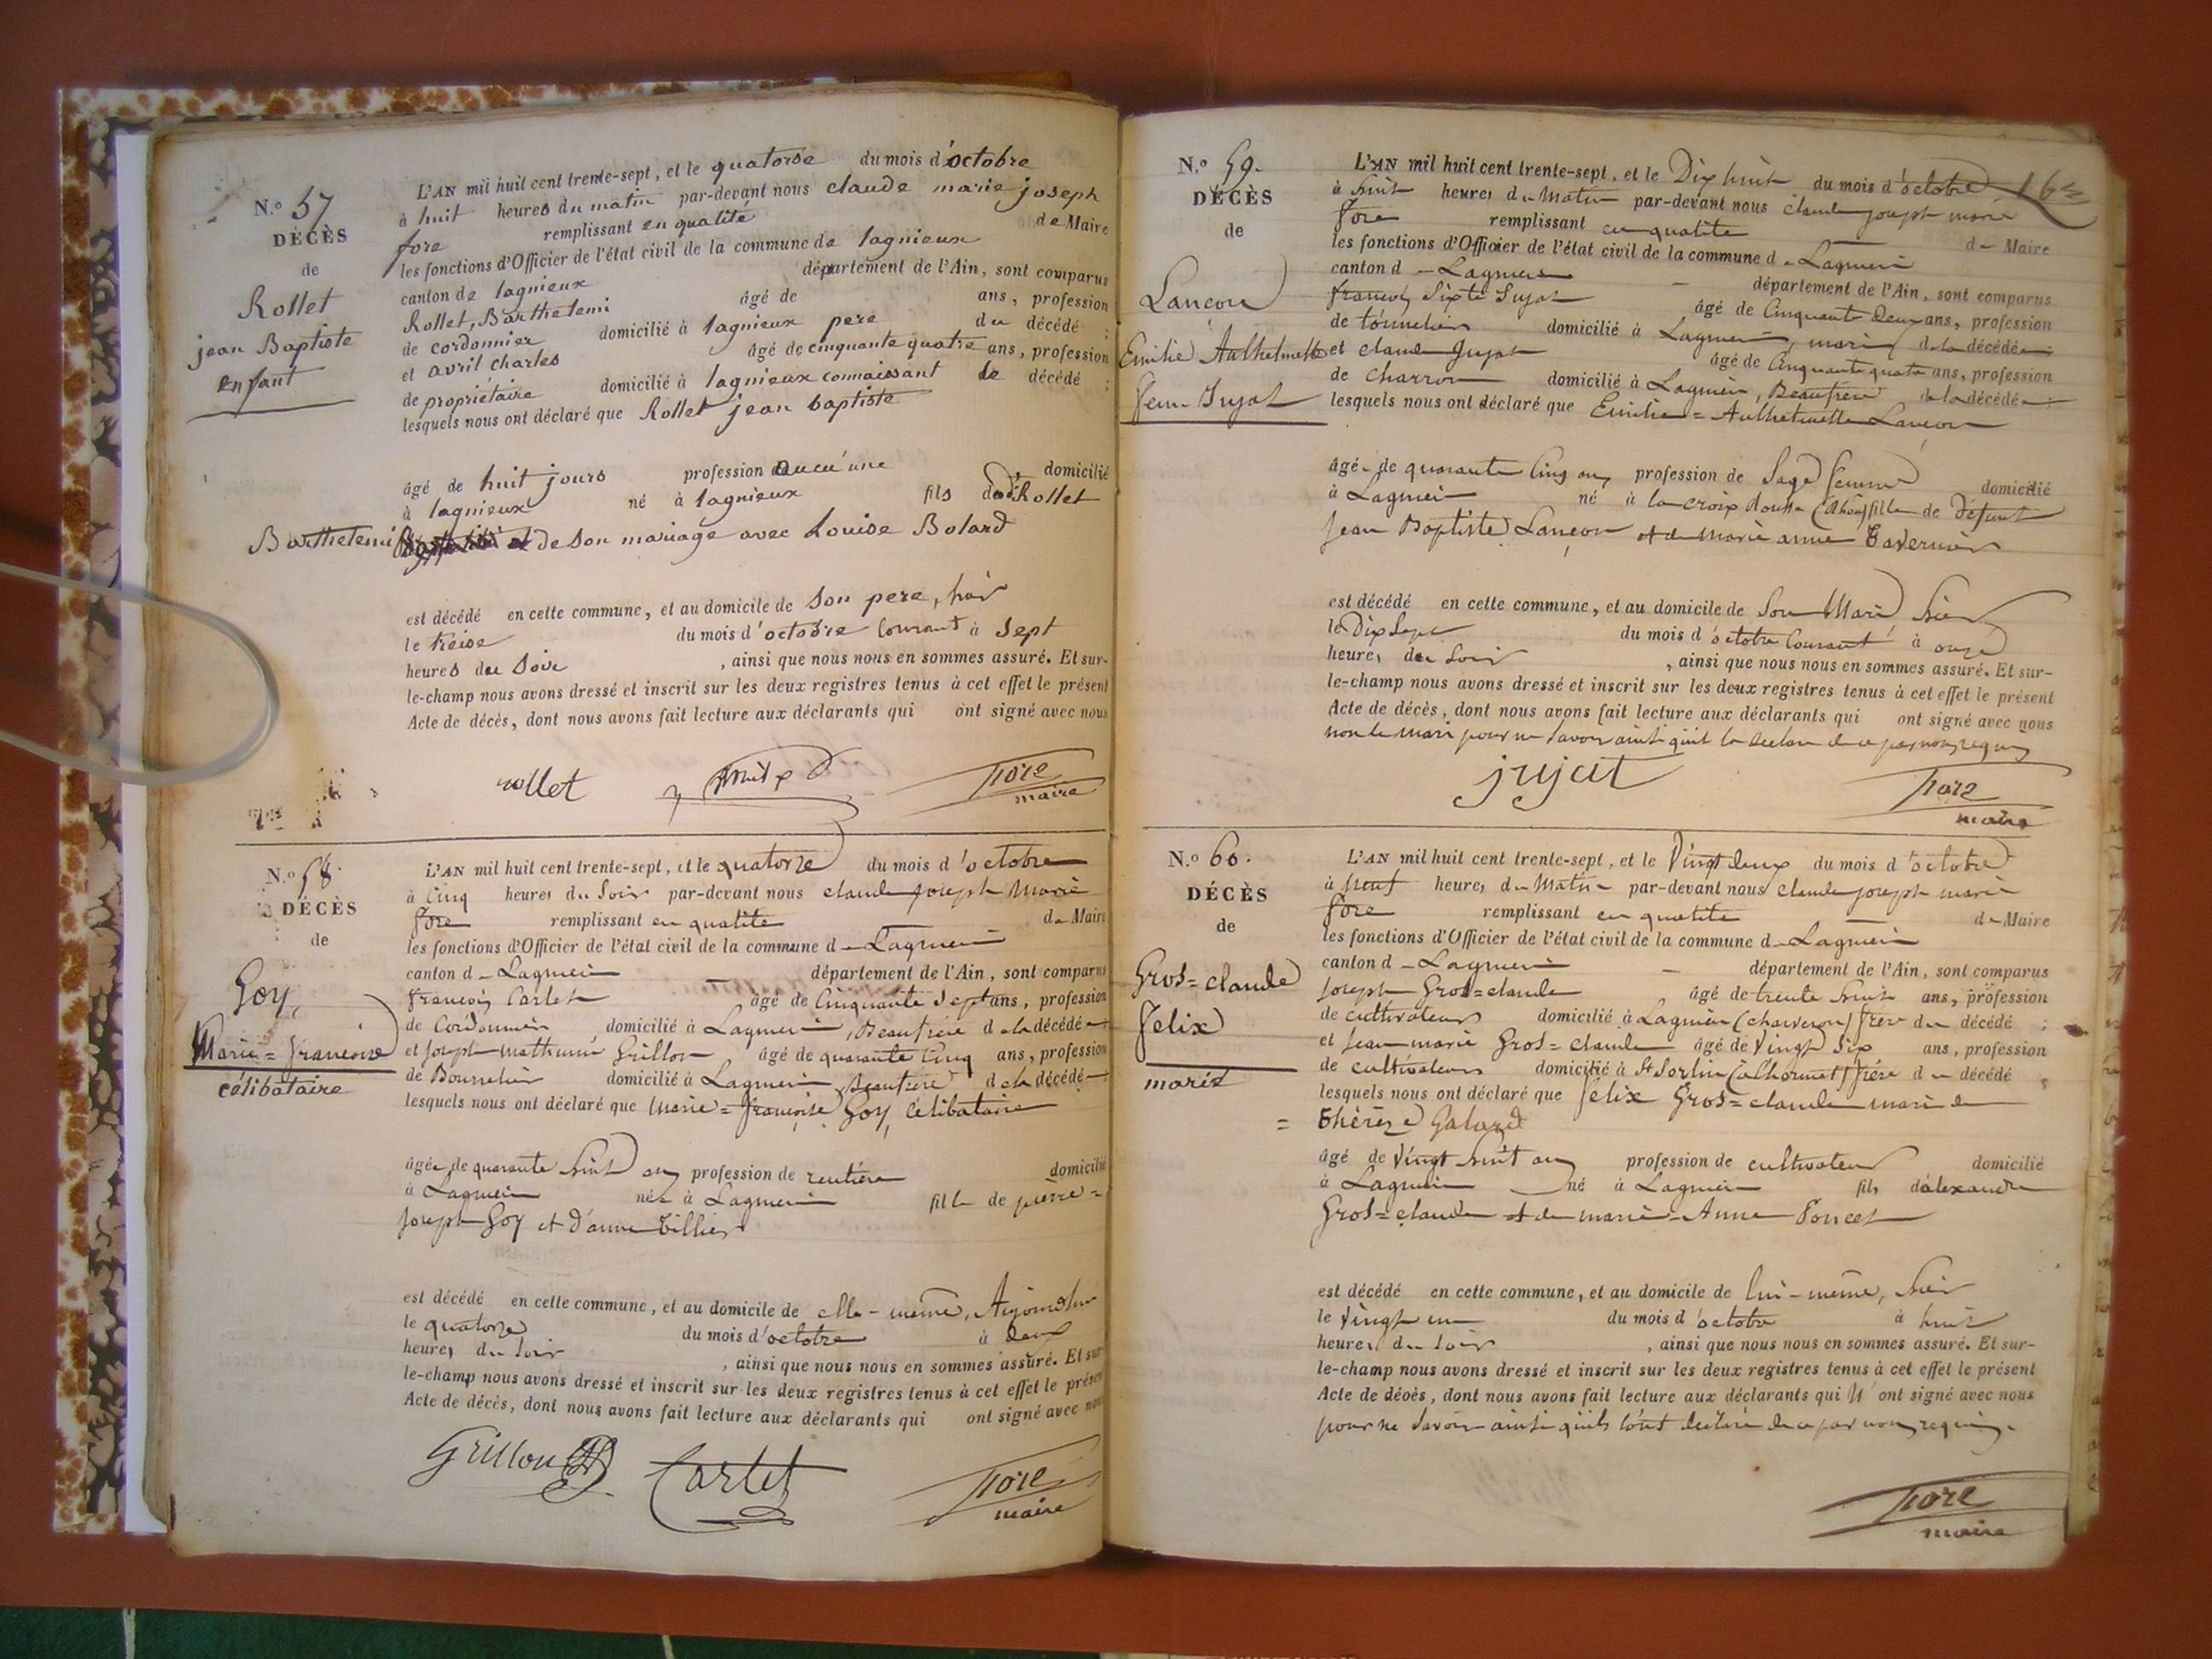 N.o 57
DÉCÈS
de
Rollet
jean Baptiste
enfant
L'AN mil huit cent trente-sept, et le quatorse du mois d'octobre
à huit heures du matin par-devant nous claude marie joseph
fore remplissant en qualité de Maire
les fonctions d'Officier de l'état civil de la commune de lagnieux
canton de lagnieux département de l'Ain, sont comparus
Rollet, Barthelemi âgé de ans, profession
de cordonnier domicilié à lagnieux pere du décédé ;
et avril charles âgé de cinquante quatre ans, profession
de propriétaire domicilié à lagnieux connaissant le décédé ;
lesquels nous ont déclaré que Rollet jean baptiste
âgé de huit jours profession aucu'une domicilié
à lagnieux né à lagnieux fils dudit Rollet
Barthelemi et de son mariage avec Louise Bolard
est décédé en cette commune, et au domicile de son pere, hier
le treise du mois d'octobre courant à sept
heures du soir , ainsi que nous nous en sommes assuré. Et sur-
le-champ nous avons dressé et inscrit sur les deux registres tenus à cet effet le présent
Acte de décès, dont nous avons fait lecture aux déclarants qui ont signé avec nous
rollet fore
maire
N.o 58.
DÉCÈS
de
Goy,
Marie=françoise
célibataire
L'AN mil huit cent trente-sept, et le quatorze du mois d'octobre
à Cinq heures du Soir par-devant nous claude joseph Marie
fore remplissant en qualité de Maire
les fonctions d'Officier de l'état civil de la commune de Lagnieu
canton de Lagnieu département de l'Ain, sont comparus
françois Carlet âgé de Cinquante Sept ans, profession
de Cordonnier domicilié à Lagnieu, Beaufrère de la décédée ;
et joseph mathurin Grillon âgé de quarante Cinq ans, profession
de Bourrelier domicilié à Lagnieu, Beaufrère de la décédée ;
lesquels nous ont déclaré que Marie=françoise Goy, Célibataire
âgée de quarante huit ans profession de rentière domicilié
à Lagnieu née à Lagnieu fille de pierre=
joseph Goy et d'anne Tillier
est décédé en cette commune, et au domicile de elle-même, Aujourd'hui
le quatorze du mois d'octobre à deux
heures du soir , ainsi que nous nous en sommes assuré. Et sur-
le-champ nous avons dressé et inscrit sur les deux registres tenus à cet effet le présent
Acte de décès, dont nous avons fait lecture aux déclarants qui ont signé avec nous
Grillon Carlet fore
maire
N.o 59.
DÉCÈS
de
Lançon
Emilie Aulhelmette
feme Jujat
L'AN mil huit cent trente-sept, et le Dix huit du mois d'octobre
à huit heures du Matin par-devant nous claude joseph marie
fore remplissant en qualité de Maire
les fonctions d'Officier de l'état civil de la commune de Lagnieu
canton de Lagnieu département de l'Ain, sont comparus
françois Sixte Jujat âgé de Cinquante Deux ans, profession
de tonnelier domicilié à Lagnieu, mari de la décédée ;
et claude Jujat âgé de Cinquante quatre ans, profession
de charron domicilié à Lagnieu, Beaufrère de la décédée ;
lesquels nous ont déclaré que Emilie=Aulhelmette Lançon
âgée de quarante Cinq ans profession de Sage femme domicilié
à Lagnieu né à la croix Rousse (Rhône) fille de défunt
Jean Baptiste Lançon et de marie anne Tavernier
est décédé en cette commune, et au domicile de Son Mari hier
le Dix Sept du mois d'octobre Courant à onze
heures du Soir , ainsi que nous nous en sommes assuré. Et sur-
le-champ nous avons dressé et inscrit sur les deux registres tenus à cet effet le présent
Acte de décès, dont nous avons fait lecture aux déclarants qui ont signé avec nous
non le mari pour ne savoir ainsi qu'il l'a declaré de ce par nous requis
jujat fore
maire
N.o 60.
DÉCÈS
de
Gros=claude
Felix
marié
L'AN mil huit cent trente-sept, et le Vingt deux du mois d'octobre
à neuf heures du Matin par-devant nous claude joseph marie
fore remplissant en qualité de Maire
les fonctions d'Officier de l'état civil de la commune de Lagnieu
canton de Lagnieu département de l'Ain, sont comparus
joseph Gros=claude âgé de trente huit ans, profession
de cultivateur domicilié à Lagnieu (charveron) frère du décédé ;
et jean marie Gros=claude âgé de Vingt Six ans, profession
de cultivateur domicilié à St Sorlin frère du décédé ;
lesquels nous ont déclaré que felix Gros=claude mari de
= Thérèze Galand
âgé de Vingt huit ans profession de cultivateur domicilié
à Lagnieu né à Lagnieu fils d'alexandre
Gros=claude et de marie=Anne Poncet
est décédé en cette commune, et au domicile de lui-même, hier
le Vingt un du mois d'octobre à huit
heures du soir , ainsi que nous nous en sommes assuré. Et sur-
le-champ nous avons dressé et inscrit sur les deux registres tenus à cet effet le présent
Acte de décès, dont nous avons fait lecture aux déclarants qui n'ont signé avec nous
pour ne Savoir ainsi qu'ils l'ont declaré de ce par nous requis.
fore
maire